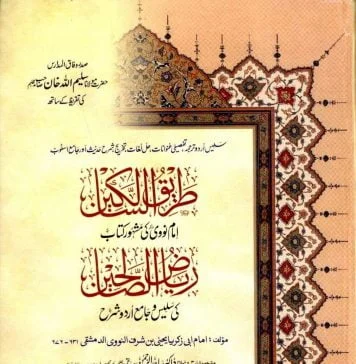 صدر وفاق المدارس
حضرت مولانا سلیم اللہ خان صاحب
کی تقریظ کے ساتھ
سلیس اردو ترجمہ، تفصیلی عنوانات، حل لغات، تخریج، شرح حدیث اور جامع اسلوب
طریق السالکین
امام نووی کی مشہور کتاب
ریاض الصالحین
کی سلیس و جامع اردو شرح
مؤلف: امام ابی زکریا یحیی بن شرف النووی الدمشقی ۶۳۱-۶۷۶